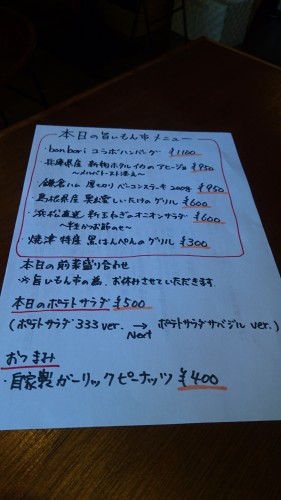 本日の旨いもん市メニュー
・bonbori コラボハンバーグ ¥1100
・兵庫県産 新物ホタルイカのアヒージョ ¥950
〜メルバトースト添え〜
・鎌倉ハム 厚切りベーコンステーキ 200g ¥950
・島根県産 しいたけのグリル ¥600
・浜松直送 新玉ねぎのオニオンサラダ ¥600
〜かつお節のせ〜
・焼津特産 黒はんぺんのグリル ¥300
本日の前菜盛り合わせ
※旨いもん市の為、お休みさせていただきます
本日のポテトサラダ ¥500
(ポテトサラダ333ver. → ポテトサラダサバジルver.)
Next
おつまみ
・自家製ガーリックピーナッツ ¥400